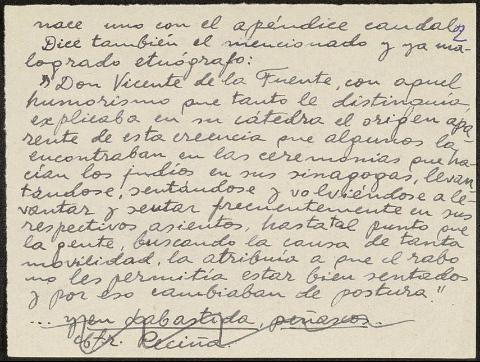 nace uno con el apéndice caudal. 2
Dice también, el mencionado y ya ma-
logrado etnógrafo:
"Don Vicente de la Fuente, con aquel
humorismo que tanto le distinguía,
explicaba en su cátedra el origen apa-
rente de esta creencia que algunos la
encontraban en las ceremonias que ha-
cían los judíos en sus sinagogas, levan-
tándose, sentándose y volviéndose a le-
vantar y sentar frecuentemente en sus
respectivos asientos, hasta tal punto que
la gente, buscando la causa de tanta
movilidad, la atribuía a que el rabo
no les permitía estar bien sentados
y por eso cambiaban de postura."
... y en Labastida,
Cofr. Peciña.